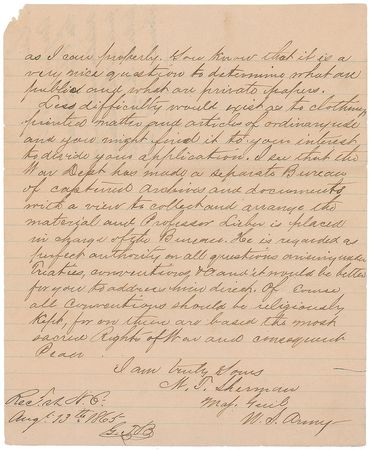 as I can properly. You know that it is a
very nice question to determine, what are
public and what are private papers.
Less difficulty would exist as to clothing,
printed matter and articles of ordinary use
and you might find it to your interest
to divide your application. I see that the
War Dept has made a separate Bureau
of captured Archives and documents
with a view to collect and arrange the
material and Professor Lieber is placed
in charge of the Bureau. He is regarded as
perfect authority on all questions arising under
Treaties, conventions, &c and it would be better
for you to address him direct. Of course
all Conventions should be religiously
Kept, for on them are based the most
sacred Rights of War and consequent
Peace.
I am truly Yours
W. T. Sherman
Maj. Genl
U. S. Army
Recd at N.O.
Augt 13th 1865
G.T.B.